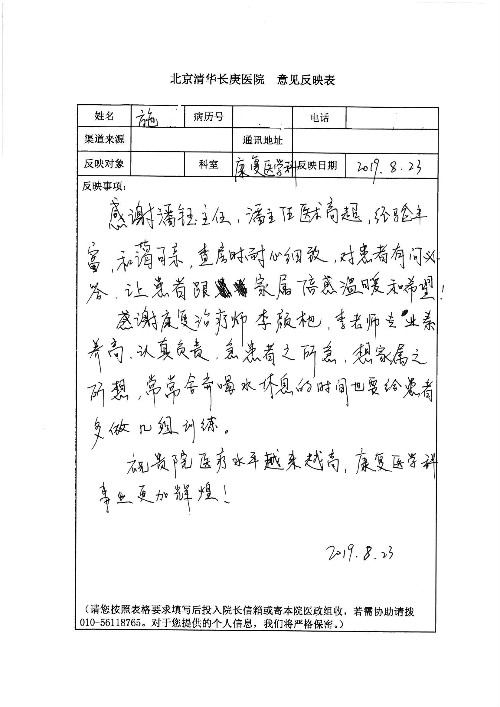 北京清华长庚医院 意见反映表
姓名 施 病历号 电话
渠道来源 通讯地址
反映对象 科室 康复医学科 反映日期 2019.8.23
反映事项：
感谢潘钰主任，潘主任医术高超，经验丰
富，和蔼可亲，查房时耐心细致，对患者有问必
答，让患者跟家属倍感温暖和希望！
感谢康复治疗师李 ，李老师专业素
养高，认真负责，急患者之所急，想家属之
所想，常常舍弃喝水休息的时间也要给患者
多做几组训练。
祝贵院医疗水平越来越高，康复医学科
事业更加辉煌！
2019.8.23
（请您按照表格要求填写后投入院长信箱或寄本院医政组收，若需协助请拨
010-56118765。对于您提供的个人信息，我们将严格保密。）